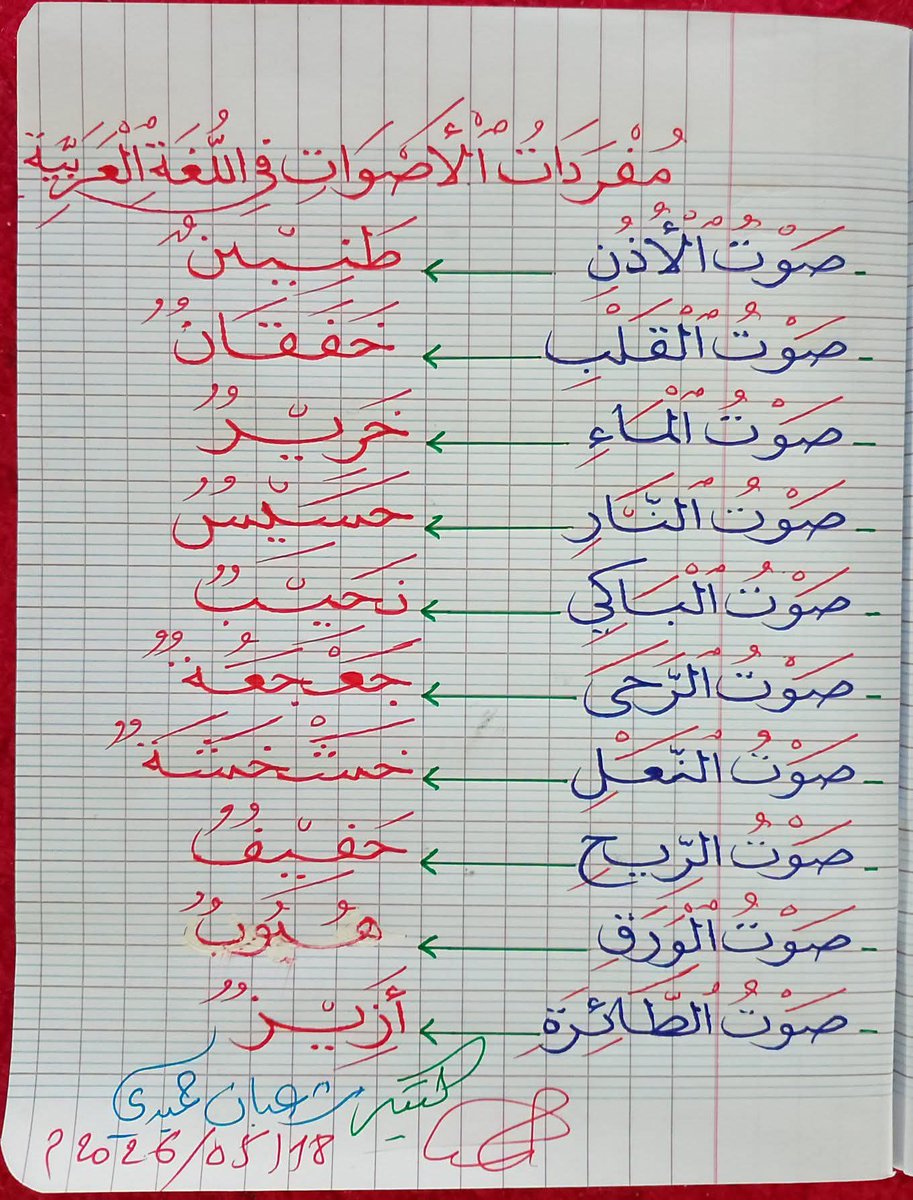 مُفْرَدَاتُ الْأَصْوَاتِ فِي اللُّغَةِ الْعَرَبِيَّةِ
- صَوْتُ الْأُذُنِ ← طَنِينٌ
- صَوْتُ الْقَلْبِ ← خَفَقَانٌ
- صَوْتُ الْمَاءِ ← خَرِيرٌ
- صَوْتُ النَّارِ ← حَسِيسٌ
- صَوْتُ الْبَاكِي ← نَحِيبٌ
- صَوْتُ الرَّحَى ← جَعْجَعَةٌ
- صَوْتُ النَّعْلِ ← خَشْخَشَةٌ
- صَوْتُ الرِّيحِ ← حَفِيفٌ
- صَوْتُ الْوَرَقِ ← هُبُوبٌ
- صَوْتُ الطَّائِرَةِ ← أَزِيزٌ
كتبه شعبان حميدي
18/05/2026م